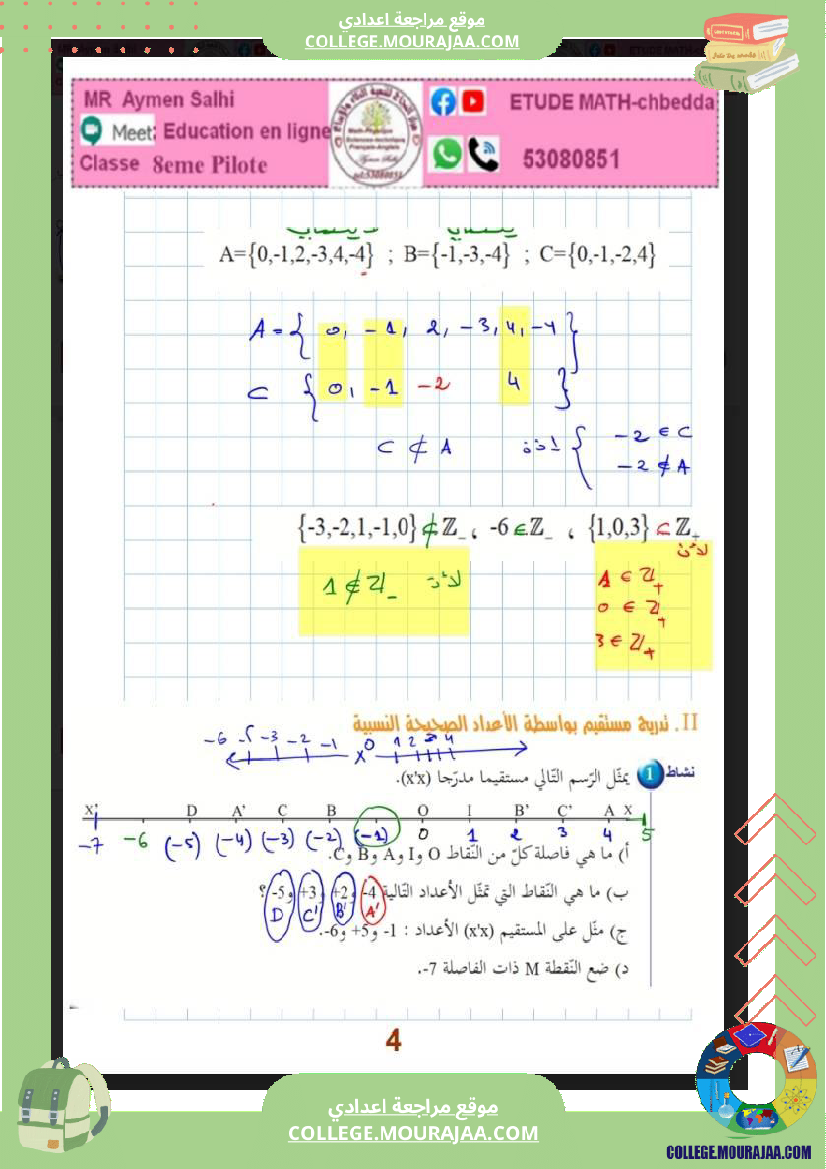 موقع مراجعة اعدادي
COLLEGE.MOURAJAA.COM
MR Aymen Salhi
Meet: Education en ligne
Classe 8eme Pilote
ETUDE MATH-chbedda
53080851
A={0,-1,2,-3,4,-4} ; B={-1,-3,-4} ; C={0,-1,-2,4}
A = { 0, -1, 2, -3, 4, -4 }
C { 0, -1 -2 4 }
C ⊄ A
-2 ∈ C
-2 ∉ A
{-3,-2,1,-1,0} ⊄ ℤ₋ ، -6 ∈ ℤ₋ ، {1,0,3} ⊂ ℤ₊
لأن 1 ∉ ℤ₋
لأن
1 ∈ ℤ₊
0 ∈ ℤ₊
3 ∈ ℤ₊
II. تدريج مستقيم بواسطة الأعداد الصحيحة النسبية
-6 -5 -3 -2 -1 0 1 2 3 4
نشاط 1 يمثّل الرّسم التّالي مستقيما مدرّجا (x'x).
X' D A' C B O I B' C' A X
-7 -6 (-5) (-4) (-3) (-2) (-1) 0 1 2 3 4 5
أ) ما هي فاصلة كلّ من النّقاط O وI وA وB وC.
ب) ما هي النّقاط التي تمثّل الأعداد التّالية -4 و +2 و +3 و -5 ؟
D C' B' A'
ج) مثّل على المستقيم (x'x) الأعداد : -1 و +5 و -6.
د) ضع النّقطة M ذات الفاصلة -7.
4
موقع مراجعة اعدادي
COLLEGE.MOURAJAA.COM
COLLEGE.MOURAJAA.COM